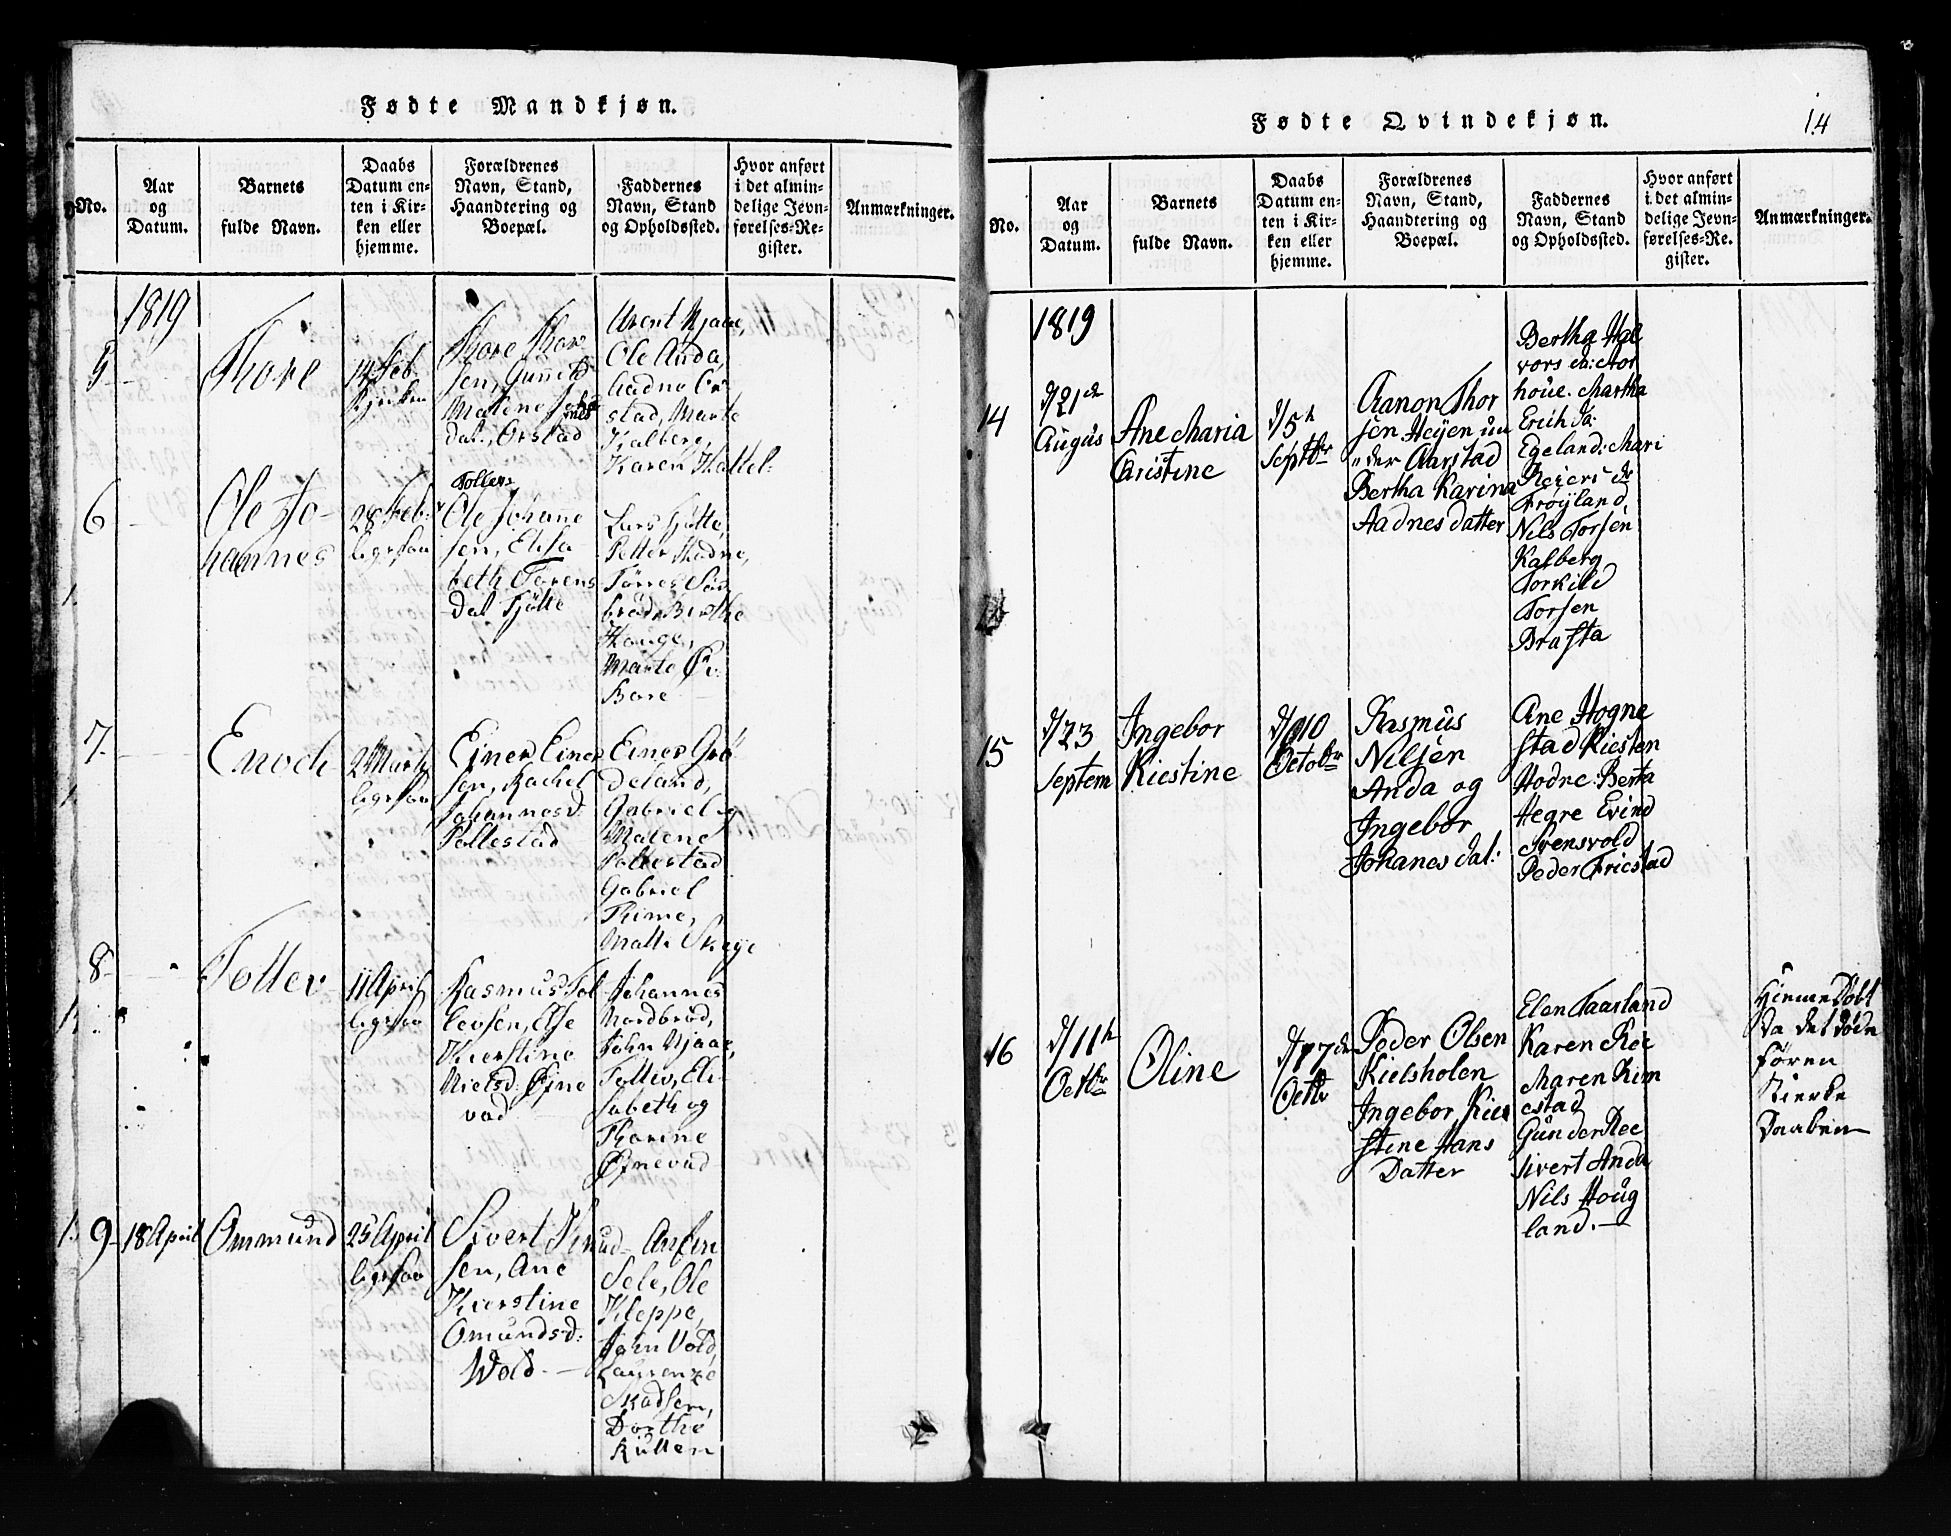 Fødte Mandkjøn.
No.
Aar
og
Datum.
Barnets
fulde Navn.
Daabs
Datum en-
ten i Kir-
ken eller
hjemme.
Forældrenes
Navn, Stand,
Haandtering og
Boepæl.
Faddernes
Navn, Stand
og Opholdssted.
Hvor anført
i det almin-
delige Jevn-
førelses-Re-
gister.
Anmærkninger.
1819
5
Thore
14 Feb.
Kjirken
Thore Thor
sen, Gunnild
Malene
dat., Orstad
Arent Njaae,
Ole Anda,
stad, Marte
Kalberg,
Karen Hattel:
6
Ole Jo-
hannes
28 Feb.
ligesaa
Tollers
Ole Johanne
sen, Elisa
beth Torens
Dat Tjøtte
Lars Tjøtte,
Petter Hodne,
Tørres Sør
brød, Berthe
Houge,
Marte Øx
Bore
7.
Enoch
2 Marti
ligesaa
Einer Einer
sen, Rachel
Johannesd.
Pollestad
Einer Grö
deland,
Gabriel og
Malene
Pollestad
Gabriel
Thime,
Malli Skeye
8
Tollev
11 April
ligesaa
Rasmus Tol
levsen, Else
Kierstine
Nielsd. Øfne
vad
Johannes
Nordbrød,
John Njaae,
Tollev, Eli
sabeth og
Thorine
Øfnevad
9
18 April
Ommund
25 April
ligesaa
Sivert Knud
sen, Ane
Kierstine
Omundsd:
Wold.
Anfin
Sele, Ole
Kleppe,
John Vold,
Laurenze
Skadsem,
Dorthe
Kutten
Fødte Qvindekjøn.
14
No.
Aar
og
Datum.
Barnets
fulde Navn.
Daabs
Datum en-
ten i Kir-
ken eller
hjemme.
Forældrenes
Navn, Stand,
Haandtering og
Boepæl.
Faddernes
Navn, Stand
og Opholdssted.
Hvor anført
i det almin-
delige Jevn-
førelses-Re-
gister.
Anmærkninger.
1819
14
d/21de
Augus
Ane Maria
Cristine
d/5h
Septbr
Aanon Thor
sen Heyen un
"der Aarstad
Bertha Karina
Aadnes datter
Bertha Hal
vors da: Aor
houe. Martha
Erich da:
Egeland: Mari
Reiers dr
Frøyland,
Nils Torsen
Kalberg
Torkild
Torsen
Brasta
15
d/23
Septem
Ingebor
Kiestine
d/10
Octobr
Rasmus
Nilsen
Anda og
Ingebor
Johanes dat:
Ane Hogne
stad Kiesten
Hodne: Berta
Hegre Evind
Svensvold
Peder Friestad
16
d/11h
Octbr
Oline
d/17de
Octbr
Peder Olsen
Kielsholen
Ingebor Kier
stine Hans
Datter
Elen Taarland
Karen Ree
Maren Kim
estad
Gunder Ree
Sivert Anda
Nils Houg
land.
Hiemedøbt
Da det døde
føren
Kierke
Daaben